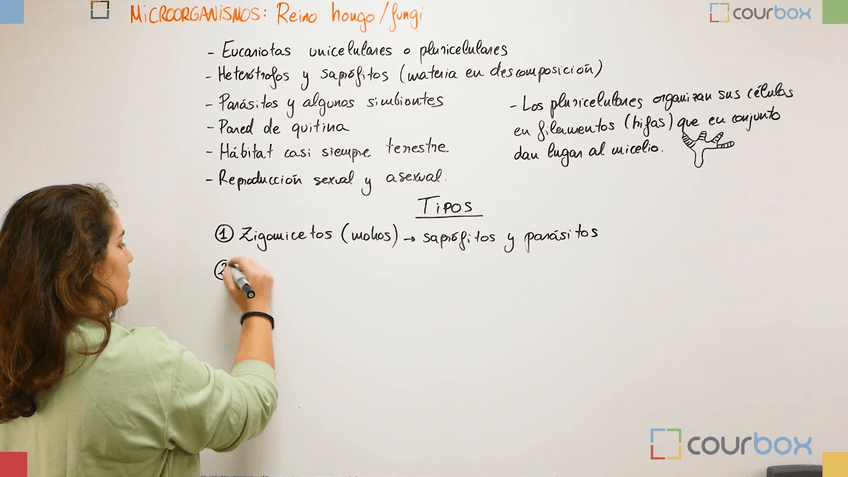 MICROORGANISMOS: Reino hongo/fungi
courbox
- Eucariotas unicelulares o pluricelulares
- Heterótrofos y saprófitos (materia en descomposición)
- Parásitos y algunos simbiontes
- Pared de quitina
- Hábitat casi siempre terrestre
- Reproducción sexual y asexual.
- Los pluricelulares organizan sus células
en filamentos (hifas) que en conjunto
dan lugar al micelio.
TIPOS
① Zigomicetos (mohos) → saprófitos y parásitos
②
courbox